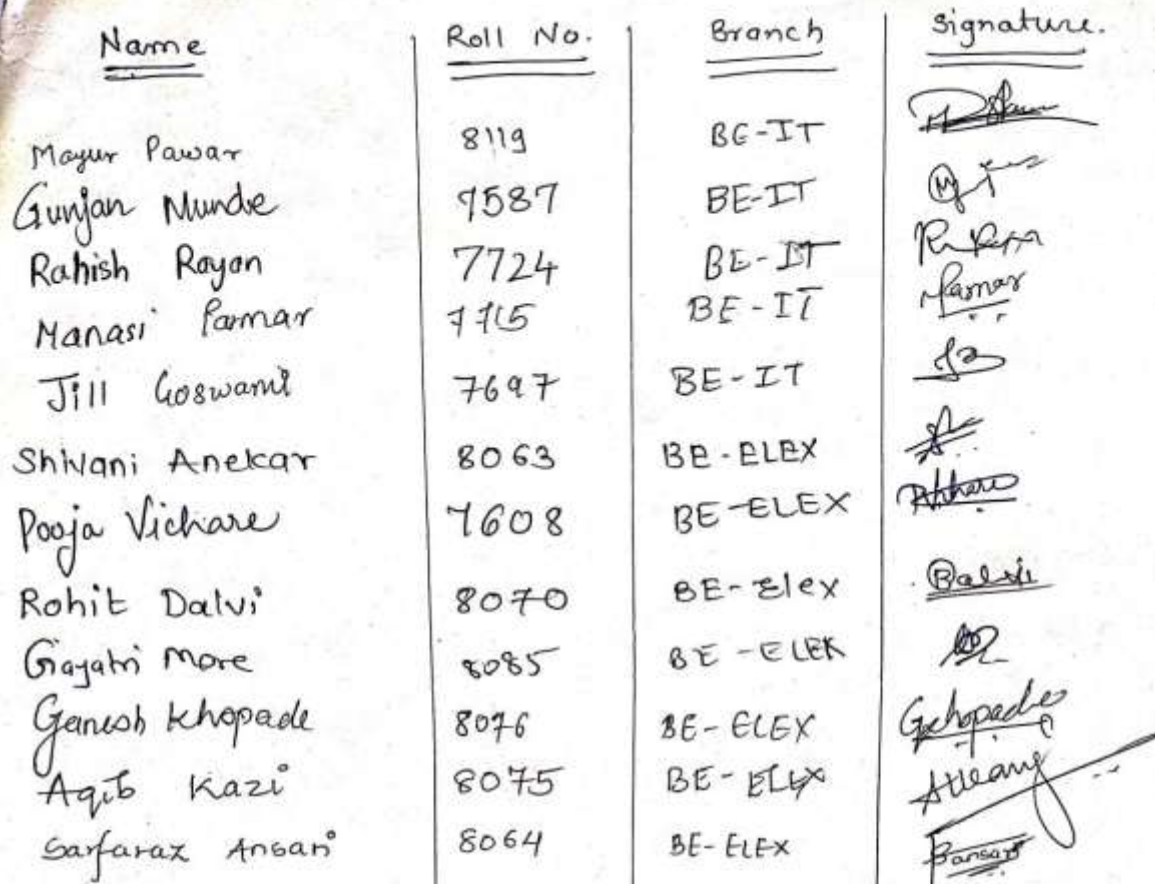 Name Roll No. Branch Signature.
Mayur Pawar 8119 BE-IT
Gunjan Munde 7587 BE-IT
Rahish Rayan 7724 BE-IT
Manasi Parmar 7715 BE-IT Parmar
Jill Goswami 7697 BE-IT
Shivani Anekar 8063 BE-ELEX
Pooja Vichare 7608 BE-ELEX
Rohit Dalvi 8070 BE-Elex Dalvi
Gayatri More 8085 BE-ELEX
Ganesh Khopade 8076 BE-ELEX Gkhopade
Aqib Kazi 8075 BE-ELEX
Sarfaraz Ansari 8064 BE-ELEX